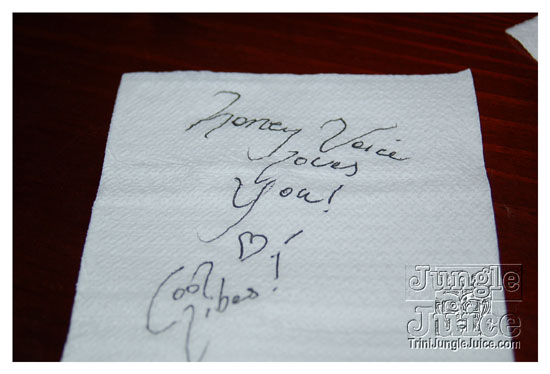 Honey Voice
loves
You!
♡!
Cool
Vibes!
Jungle
Juice
TriniJungleJuice.com